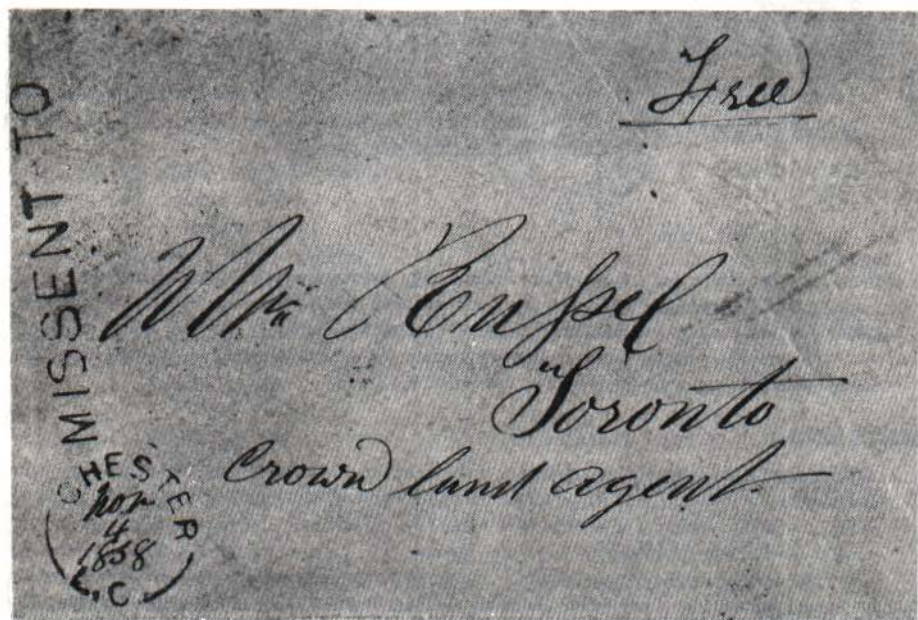 Free
MISSENT TO
Wm Russel
Toronto
Crown land agent
CHESTER
Nov
4
1858
.C